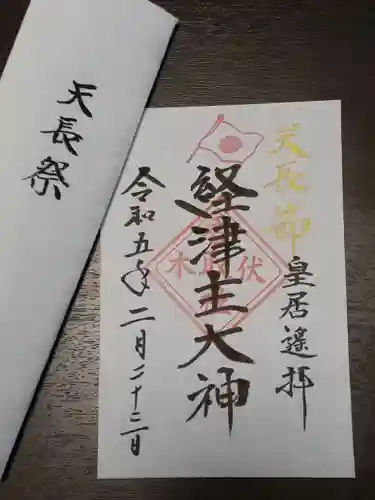 天長祭
天長節
皇居遥拝
経津主大神
令和五年二月二十三日